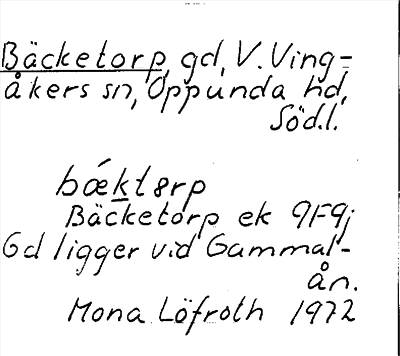 Bäcketorp, gd, V. Ving-
åkers sn, Oppunda hd,
Södl.
bǽktɵrp
Bäcketorp ek 9F9j
Gd ligger vid Gammal-
ån.
Mona Löfroth 1972